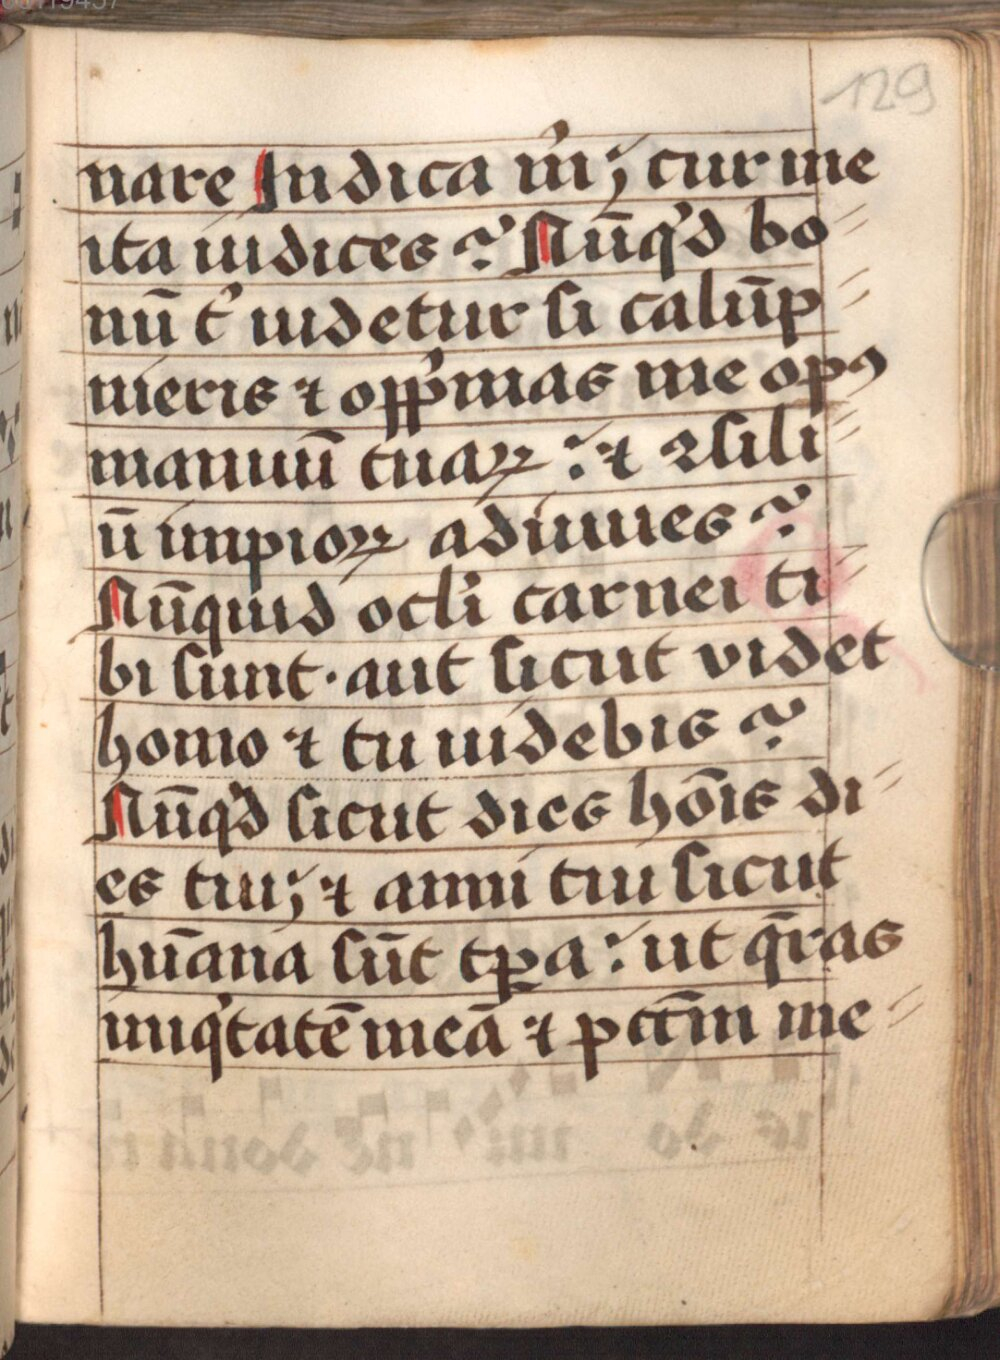 129
nare Indica m̄ ; cur me
ita iudices ? Nūq'd bo
nū t' uidetur si calūp
nieris ⁊ opp'mas me opꝰ
manuū tuaꝝ : ⁊ ꝯsili
ū impioꝝ adiuues ?
Nūquid ocl'i carnei ti
bi sunt · aut sicut videt
homo ⁊ tu uidebis ?
Nūq'd sicut dies hōis di
es tui ; ⁊ anni tui sicut
hūana sūt tꝑa : ut q̄ras
iniq'tatē meā ⁊ pctm̄ me